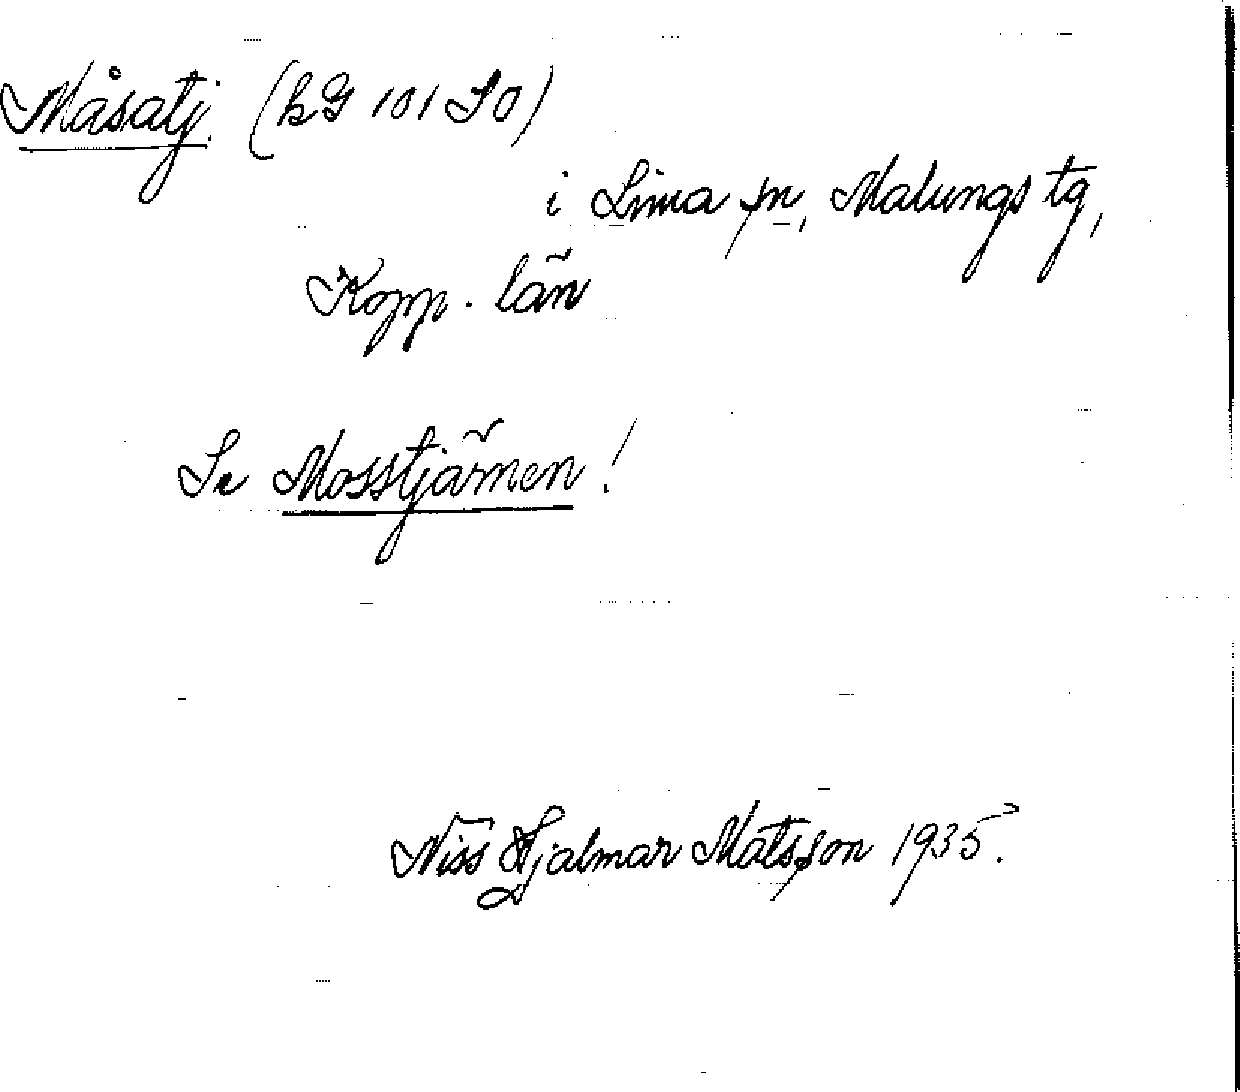 Måsatj. (kG 101 SO)
i Lima sn, Malungs tg,
Kopp. län
Se Mosstjärnen!
Niss Hjalmar Matsson 1935.